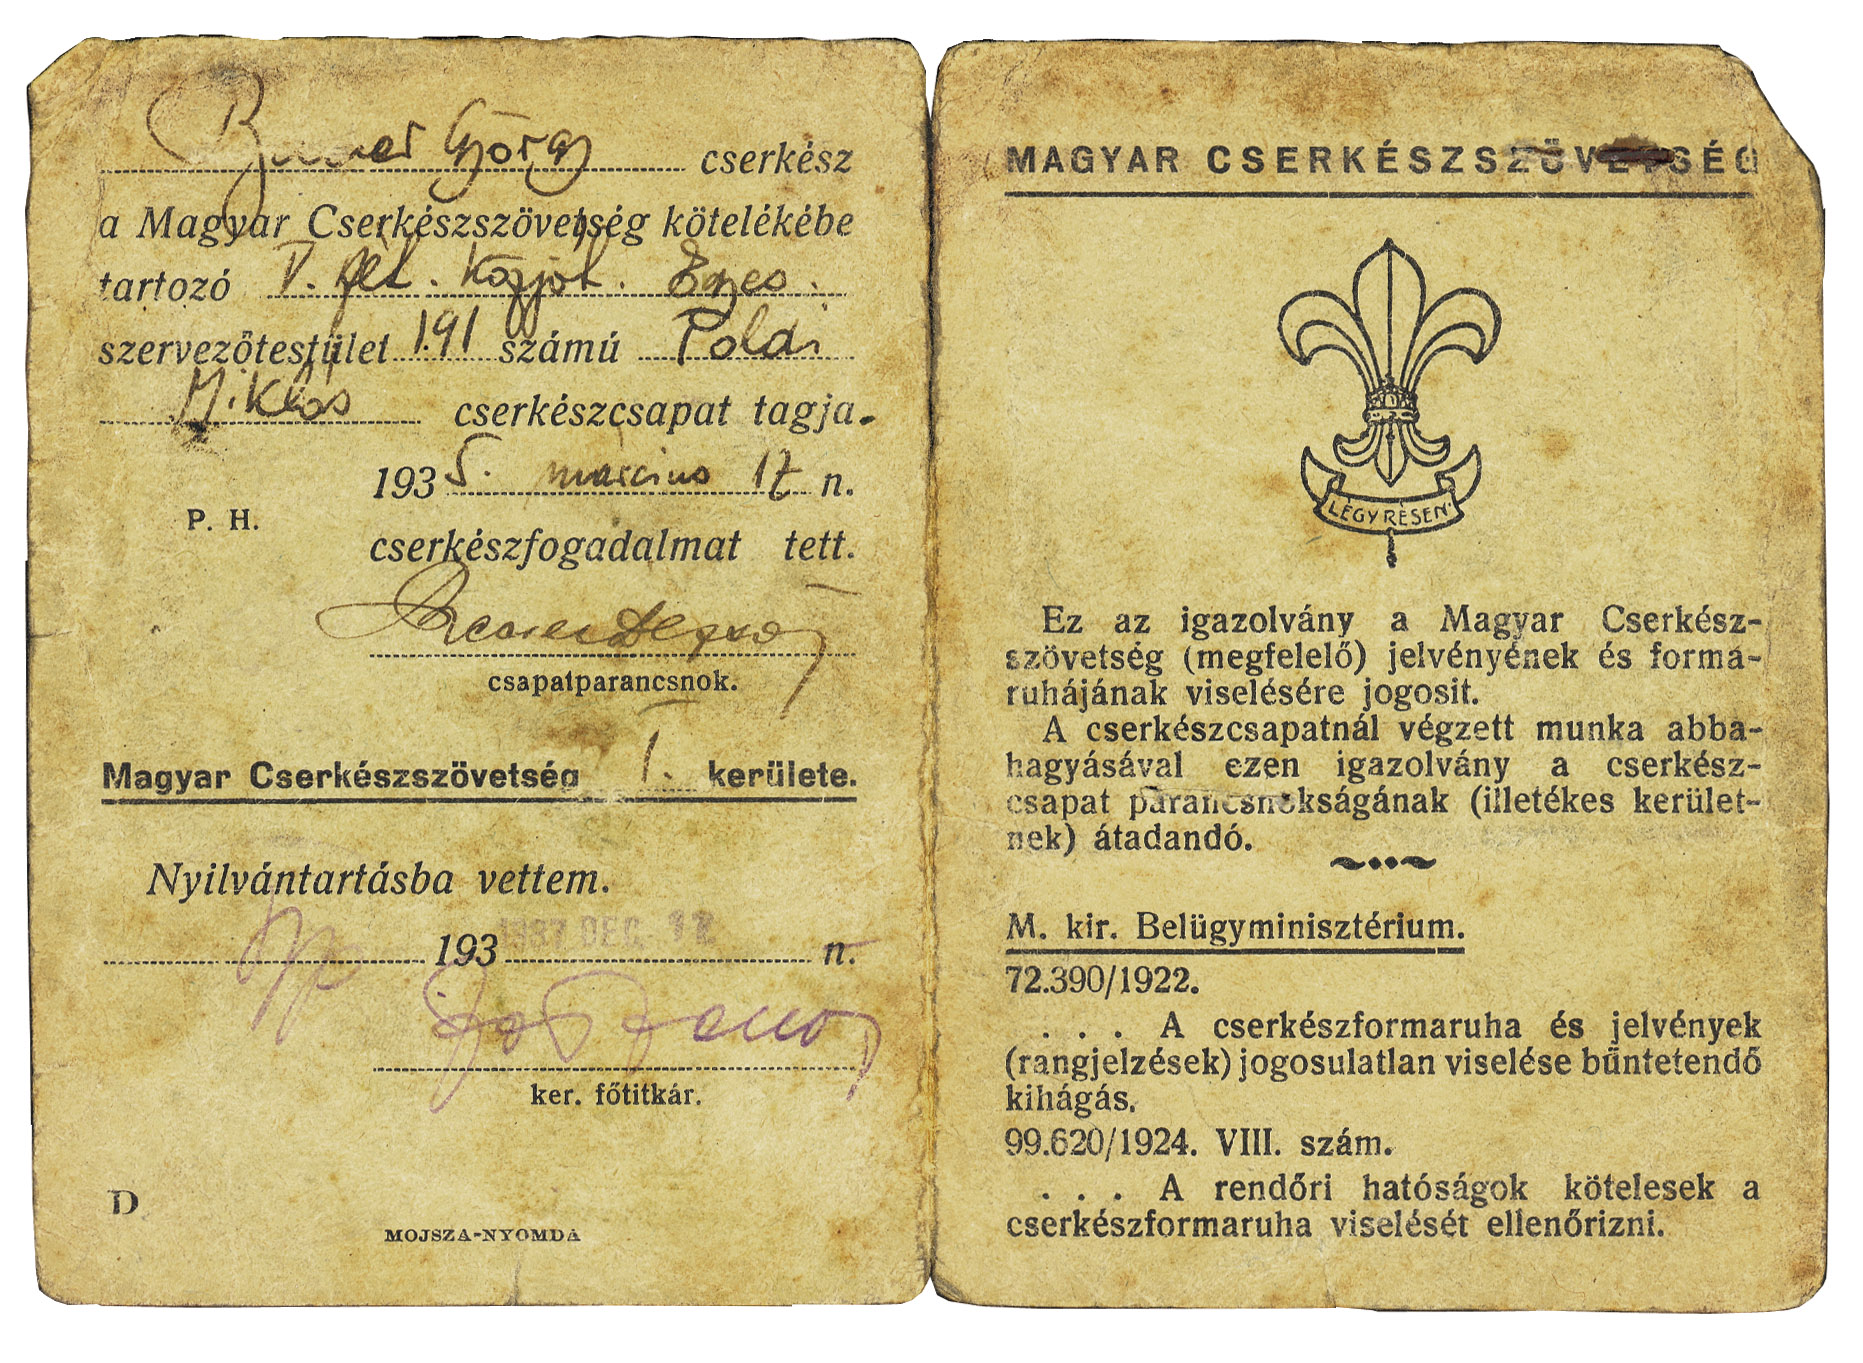 György cserkész
a Magyar Cserkészszövetség kötelékébe
tartozó V. Egyes.
szervezőtestület 191 számú Poldi
Miklós cserkészcsapat tagja.
1935. március 17 n.
P. H.
cserkészfogadalmat tett.
csapatparancsnok.
Magyar Cserkészszövetség I. kerülete.
Nyilvántartásba vettem.
193 1937 DEC. 12 n.
ker. főtitkár.
D
MOJSZA-NYOMDA
MAGYAR CSERKÉSZSZÖVETSÉG
LÉGY RÉSEN
Ez az igazolvány a Magyar Cserkész-
szövetség (megfelelő) jelvényének és forma-
ruhájának viselésére jogosit.
A cserkészcsapatnál végzett munka abba-
hagyásával ezen igazolvány a cserkész-
csapat parancsnokságának (illetékes kerület-
nek) átadandó.
M. kir. Belügyminisztérium.
72.390/1922.
. . . A cserkészformaruha és jelvények
(rangjelzések) jogosulatlan viselése büntetendő
kihágás.
99.620/1924. VIII. szám.
. . . A rendőri hatóságok kötelesek a
cserkészformaruha viselését ellenőrizni.